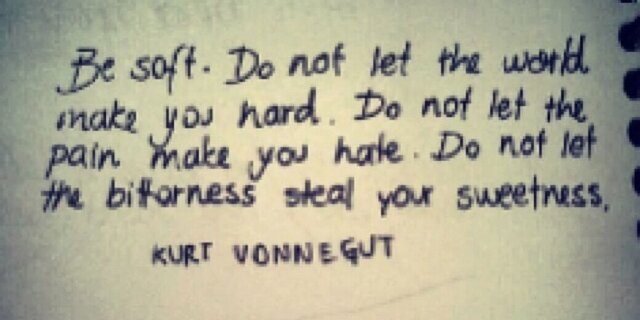 Be soft. Do not let the world
make you hard. Do not let the
pain make you hate. Do not let
the bitterness steal your sweetness.
KURT VONNEGUT